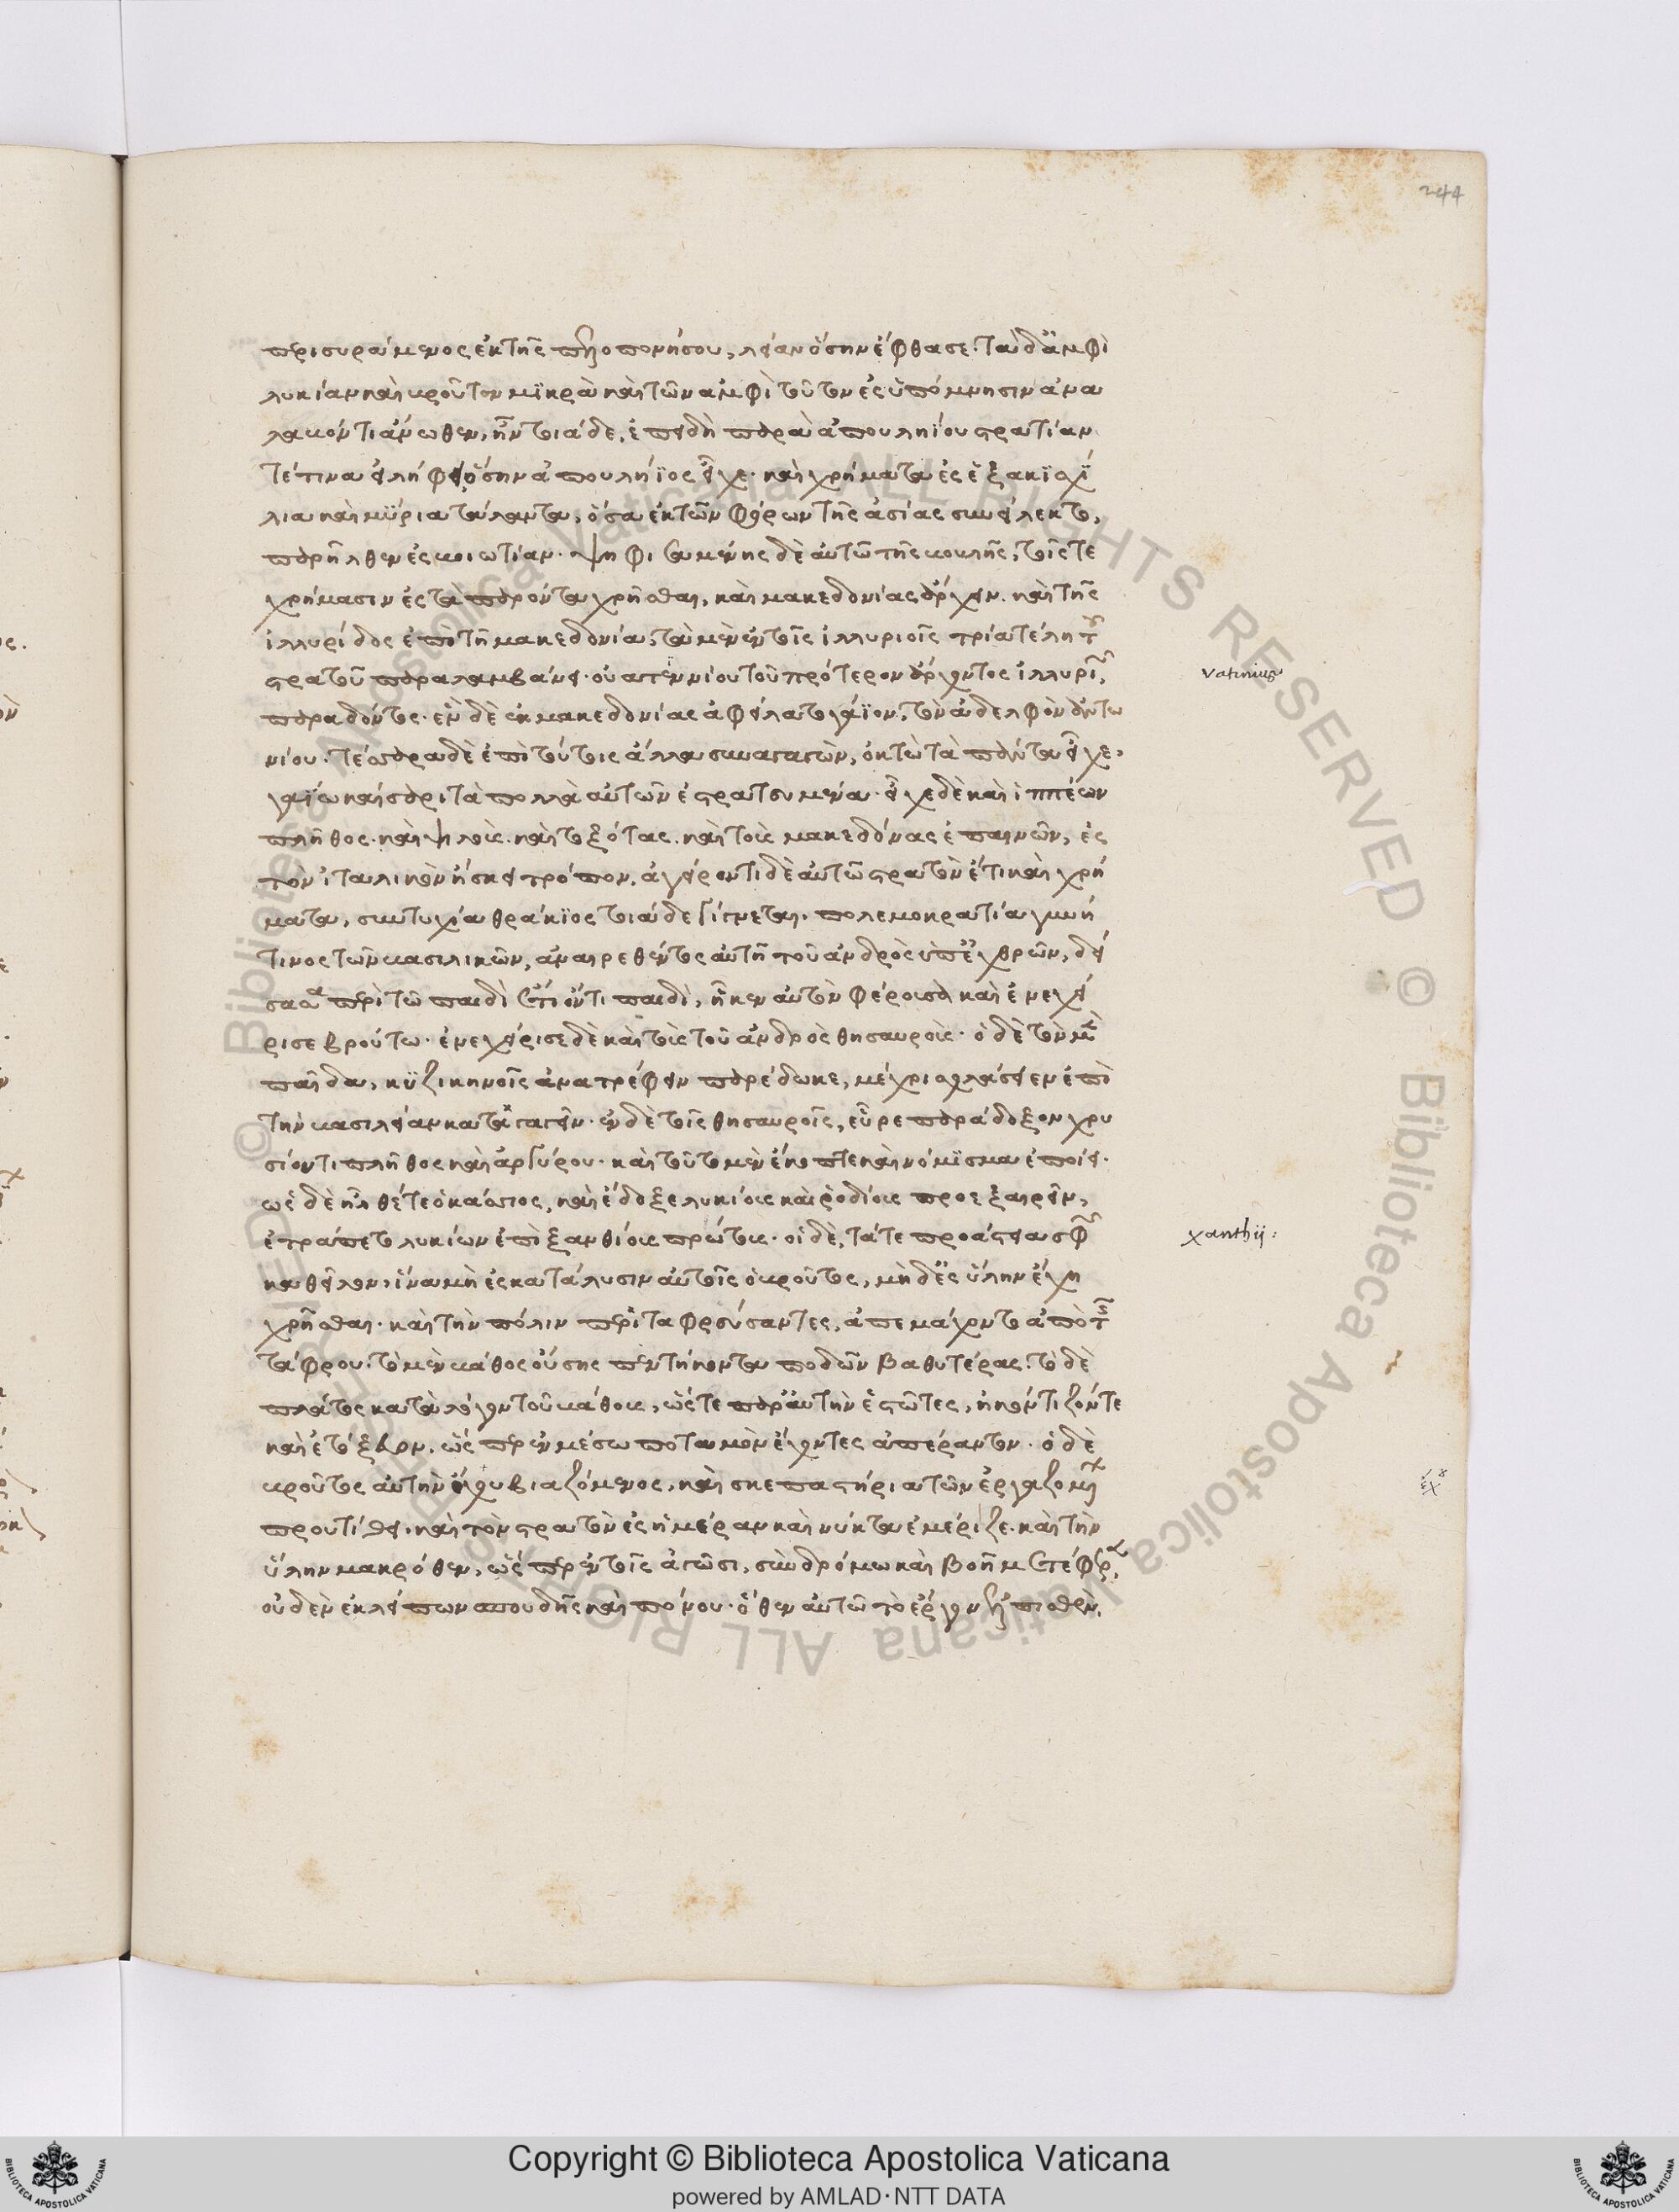 244
περισυράμενος ἐκ τῆς πελοποννήσου, λείαν ὅσην ἔφθασε. τὰ δ' ἀμφὶ
λυκίαν καὶ βροῦτον μϊκρὰ καὶ τῶν ἀμφὶ τοῦτον ἐς ὑπόμνησιν ἀνα
λαβόντι ἄνωθεν, ἦν τοιάδε. ἐπειδὴ παρὰ ἀπουληίου στρατιάν
τέ τινα εἰλήφει ὅσην ἀπουλήϊος εἶχε. καὶ χρήματα ἐς ἑξακϊσχί
λια καὶ μύρια τάλαντα, ὅσα ἐκ τῶν φόρων τῆς ἀσίας συνείλεκτο,
παρῆλθεν ἐς βοιωτίαν. ψηφισαμένης δὲ αὐτῶ τῆς βουλῆς, τοῖς τε
χρήμασιν ἐς τὰ παρόντα χρῆσθαι, καὶ μακεδονίας ἄρχειν. καὶ τῆς
ἰλλυρίδος ἐπὶ τῆ μακεδονία, τὰ μὲν ἐν τοῖς ἰλλυριοῖς τρία τέλη τοῦ
στρατοῦ παραλαμβάνει. οὐατιννίου τοῦ πρότερον ἄρχοντος ἰλλυριῶν,
vatinius
παραδόντος. ἓν δὲ ἐκ μακεδονίας ἀφείλατο γάϊον, τὸν ἀδελφὸν ἀντω
νίου. τέσσαρα δὲ ἐπὶ τούτοις ἄλλα συναγαγὼν, ὀκτὼ τὰ πάντα εἶχε,
γαΐω καίσαρι τὰ πολλὰ αὐτῶν ἐστρατευμένα. εἶχε δὲ καὶ ἱππέων
πλῆθος. καὶ ψιλοὺς. καὶ τοξότας. καὶ τοὺς μακεδόνας ἐπαινῶν, ἐς
τὸν ἰταλικὸν ἤσκει τρόπον. ἀγείροντι δὲ αὐτῶ στρατὸν ἔτι καὶ χρή
ματα, συντυχία θράκϊος τοιάδε γίγνεται. πολεμοκρατία γυνή
τινος τῶν βασιλικῶν, ἀναιρεθέντος αὐτῆ τοῦ ἀνδρὸς ὑπ' ἐχθρῶν, δεί
σασα περὶ τῶ παιδὶ ἔτι ὄντι παιδὶ, ἧκεν αὐτὸν φέρουσα καὶ ἐνεχεί
ρισε βρούτω. ἐνεχείρισε δὲ καὶ τοὺς τοῦ ἀνδρὸς θησαυροὺς. ὁ δὲ τὸν μὲν
παῖδα, κυζικηνοῖς ἀνατρέφειν παρέδωκε, μέχρι σχολάσειεν ἐπὶ
τὴν βασιλείαν καταγαγεῖν. ἐν δὲ τοῖς θησαυροῖς, εὗρε παράδοξον χρυ
σίου τι πλῆθος καὶ ἀργύρου. καὶ τοῦτο μὲν ἔκοπτε καὶ νόμϊσμα ἐποίει.
ὡς δὲ ἦλθέ τε ὁ κάσσιος, καὶ ἔδοξε λυκίους καὶ ῥοδίους προεξαιρεῖν,
ἐτράπετο λυκίων ἐπὶ ξανθίους πρώτους. οἱ δὲ, τά τε προάστεια σφῶν
xanthij:
καθεῖλον, ἵνα μὴ ἐς κατάλυσιν αὐτοῖς ὁ βροῦτος, μὴ δ' ἐς ὕλην ἔχη
χρῆσθαι. καὶ τὴν πόλιν περιταφρεύσαντες, ἀπεμάχοντο ἀπὸ τῆς
τάφρου. τὸ μὲν βάθος οὔσης πεντήκοντα ποδῶν βαθυτέρας. τὸ δὲ
πλάτος κατὰ λόγον τοῦ βάθους, ὥστε παρ' αὐτὴν ἑστῶτες, ἠκόντιζόν τε
καὶ ἐτόξευον. ὥσπερ ἐν μέσω ποταμὸν ἔχοντες ἀπέραντον. ὁ δὲ
βροῦτος αὐτὴν ἔχου βιαζόμενος, καὶ σκεπαστήρια τῶν ἐργαζομένων
προυτίθει. καὶ τὸν στρατὸν ἐς ἡμέραν καὶ νύκτα ἐμέριζε. καὶ τὴν
ὕλην μακρόθεν, ὥσπερ ἐν τοῖς ἀγῶσι, σὺν δρόμω καὶ βοῆ μετέφερεν,
οὐδὲν ἐκλείπων σπουδῆς καὶ πόνου. ὅθεν αὐτῶ τὸ ἔργον ἐλπισθὲν,
Copyright © Biblioteca Apostolica Vaticana
powered by AMLAD·NTT DATA